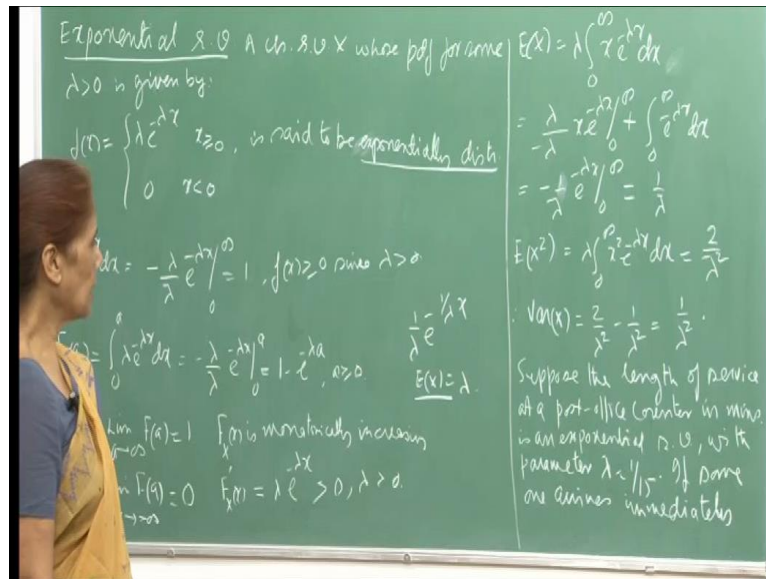 Exponential r.v A ch. r.v. X whose pdf for some
λ>0 is given by:
f(x) = { λe^{-λx} x≥0, is said to be exponentially distr.
0 x<0
dx = -λ/λ e^{-λx} |_0^∞ = 1, f(x)≥0 since λ>0.
= ∫_0^a λe^{-λx} dx = -λ/λ e^{-λx} |_0^a = 1-e^{-λa}, a≥0.
1/λ e^{-1/λ x}
E(X)=λ.
F(a)=1 F_X(x) is monotonically increasing
F(a)=0 F'_X(x) = λe^{-λx} >0, λ>0.
E(X) = λ∫_0^∞ x e^{-λx} dx
= λ/-λ xe^{-λx} |_0^∞ + ∫_0^∞ e^{-λx} dx
= -1/λ e^{-λx} |_0^∞ = 1/λ
E(X²) = λ∫_0^∞ x² e^{-λx} dx = 2/λ²
∴ Var(X) = 2/λ² - 1/λ² = 1/λ².
Suppose the length of service
at a post-office counter in mins.
is an exponential r.v, with
parameter λ = 1/15. If some
one arrives immediately